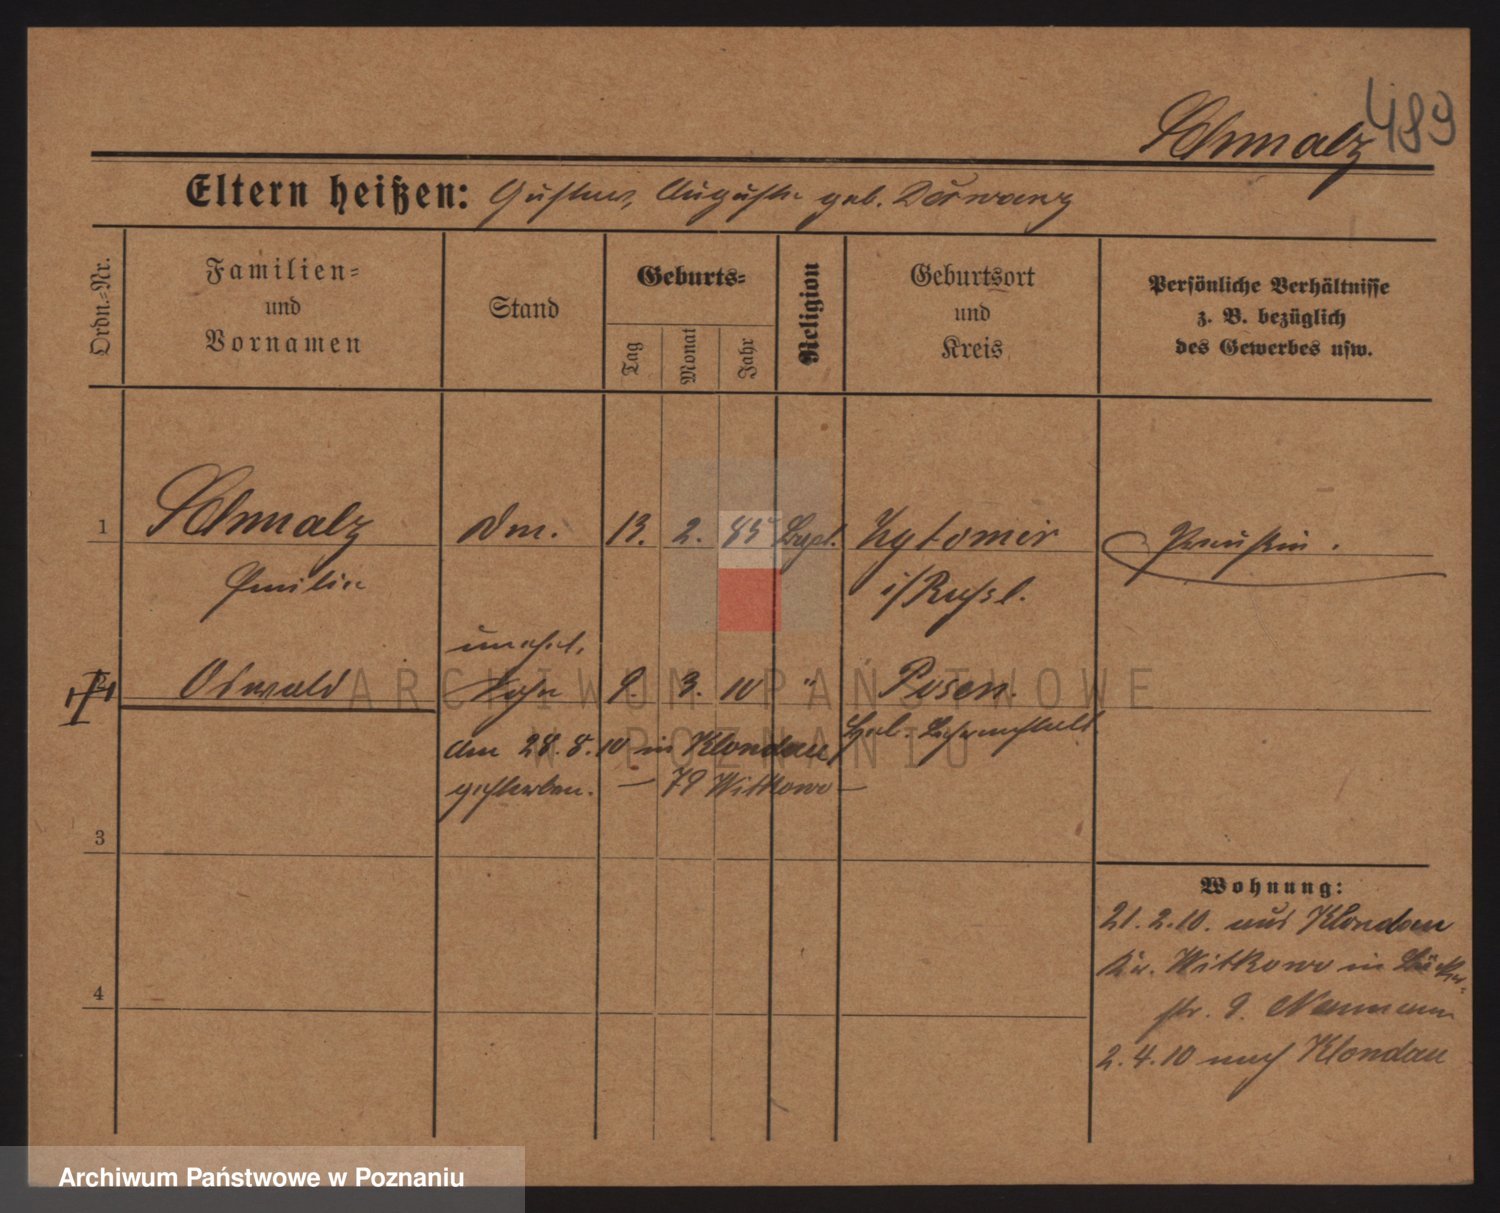 489
Schmalz
Eltern heißen: Gustav, Auguste geb. Dorwanz
Ordn.-Nr.
Familien-
und
Vornamen
Stand
Geburts-
Tag
Monat
Jahr
Religion
Geburtsort
und
Kreis
Persönliche Verhältnisse
z. B. bezüglich
des Gewerbes usw.
1 Schmalz Dm. 13. 2. 85 Zytomir Preußin.
Emilie i/Russl.
unehel.
2 Oswald Sohn 9. 3. 10 " Posen.
Heb. Lehranstalt.
am 28.8.10 in Klondau
gestorben. — 79 Witkowo —
3
4
Wohnung:
21.2.10. aus Klondau
Kr. Witkowo in Bäcker-
str. 9. Neumann
2.4.10 nach Klondau
ARCHIWUM PAŃSTWOWE
W POZNANIU
Archiwum Państwowe w Poznaniu